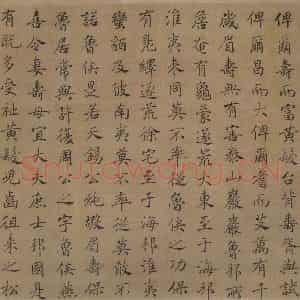 俾爾壽而富黃髮台背壽胥與試
俾爾昌而大俾爾耆而艾萬有千
歲眉壽無有害泰山巖巖魯邦所
詹奄有龜蒙遂荒大東至于海邦
淮夷來同莫不率從魯侯之功保
有鳧繹遂荒徐宅至于海邦淮夷
蠻貊及彼南夷莫不率從莫敢不
諾魯侯是若天錫公純嘏眉壽保
魯居常與許復周公之宇魯侯燕
喜令妻壽母宜大夫庶士邦國是
有既多受祉黃髮兒齒徂來之松
Shufawang.CN